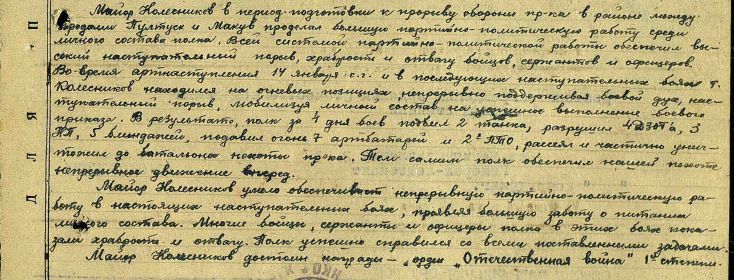 Майор Колесников в период подготовки к прорыву обороны пр-ка в районе между
городами Пултуск и Макув проделал большую партийно-политическую работу среди
личного состава полка. Всей системой партийно-политической работы обеспечил вы-
сокий наступательный порыв, храбрость и отвагу бойцов, сержантов и офицеров.
Во время артнаступления 14 января с.г. и в последующих наступательных боях т.
Колесников находился на огневых позициях, непрерывно поддерживая боевой дух, нас-
тупательный порыв, мобилизуя личный состав на успешное выполнение боевого
приказа. В результате, полк за 4 дня боев подбил 2 танка, разрушил 4 ДЗОТа, 3
НП, 5 блиндажей, подавил огонь 7 артбатарей и 2х ПТО, рассеял и частично унич-
тожил до батальона пехоты пр-ка. Тем самым полк обеспечил нашей пехоте
непрерывное движение вперед.
Майор Колесников умело обеспечивает непрерывную партийно-политическую ра-
боту в настоящих наступательных боях, проявляя большую заботу о питании
личного состава. Многие бойцы, сержанты и офицеры полка в этих боях пока-
зали храбрость и отвагу. Полк успешно справился со всеми поставленными задачами.
Майор Колесников достоин награды – орден „Отечественная война" 1й степени.
Д Л Я П
НКО